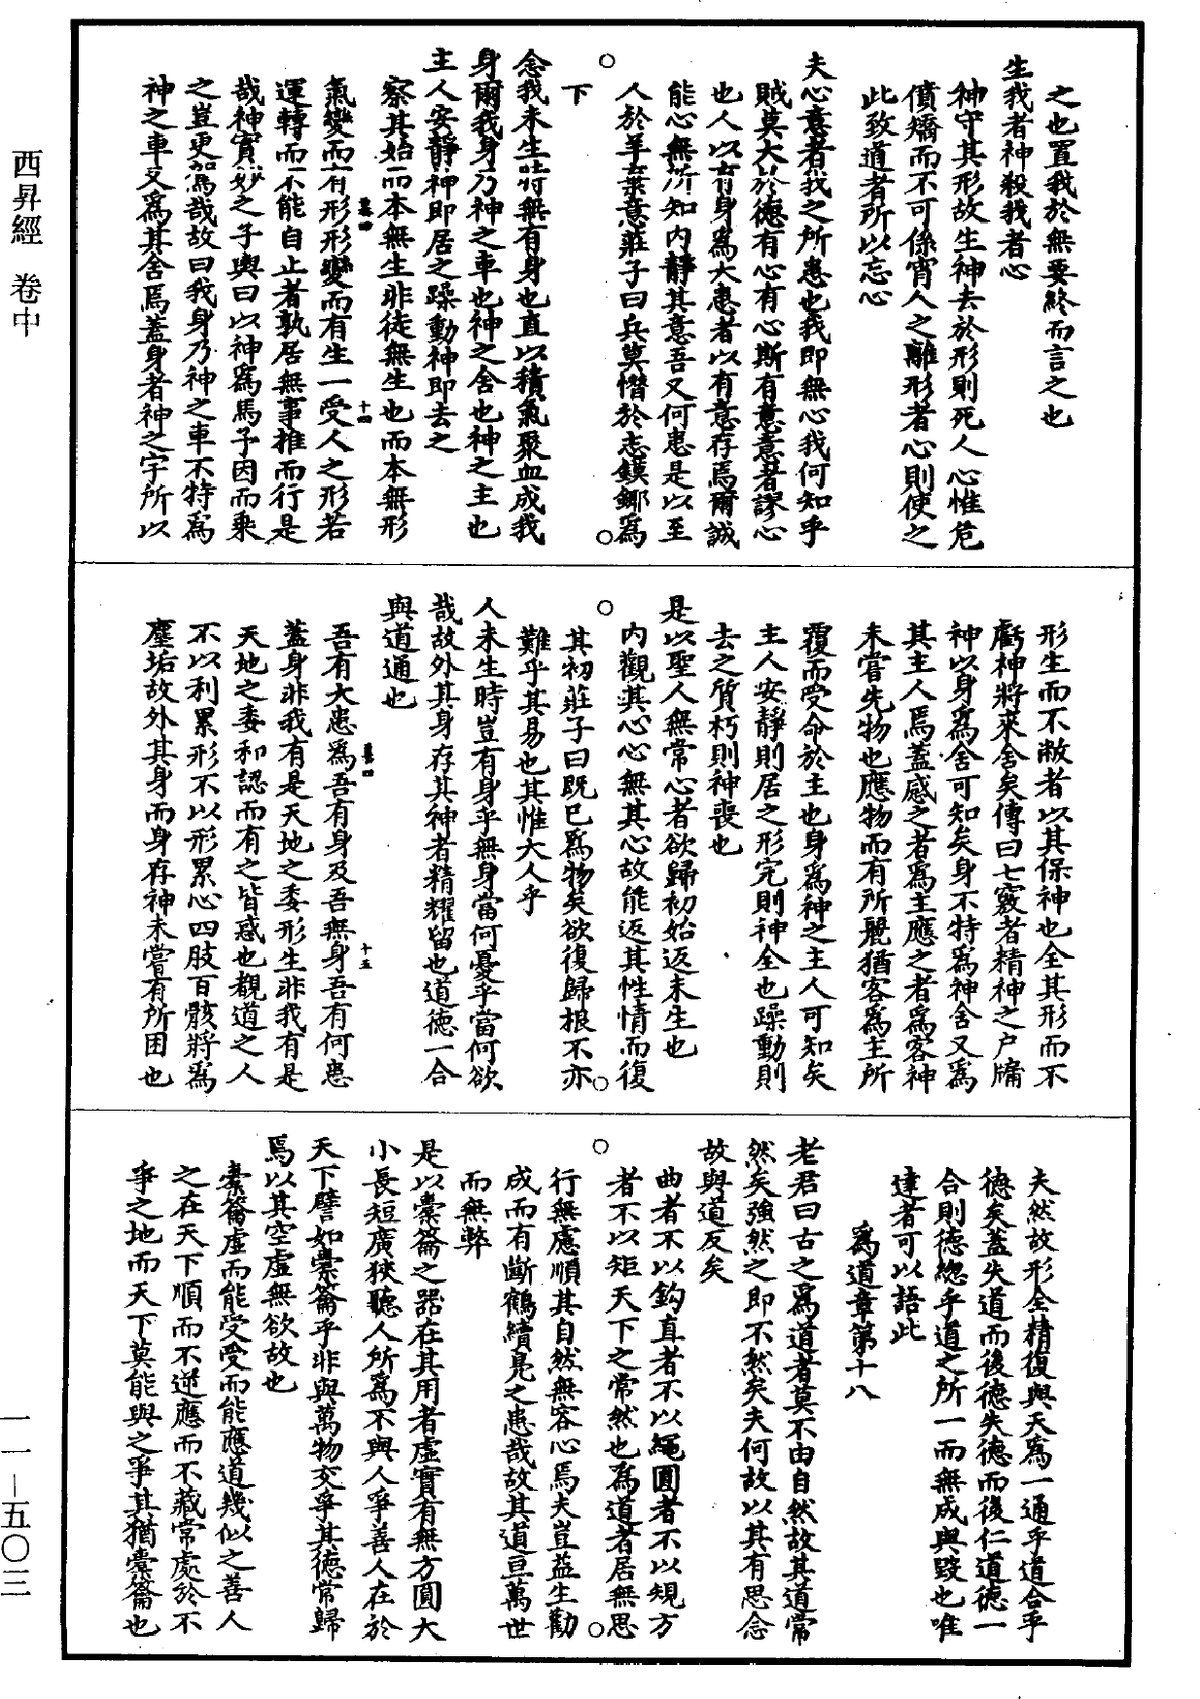 西昇經 卷中
之也置我於無要終而言之也
生我者神殺我者心
神守其形故生神去於形則死人心惟危
僨矯而不可係宵人之離形者心則使之
此致道者所以忘心
夫心意者我之所患也我即無心我何知乎
賊莫大於德有心有心斯有意意者謬心
也人以有身爲大患者以有意存焉爾誠
能心無所知內靜其意吾又何患是以至
人於羊棄意莊子曰兵莫憯於志鏌鎁爲
下
念我未生時無有身也直以積氣聚血成我
身爾我身乃神之車也神之舍也神之主也
主人安靜神即居之躁動神即去之
察其始而本無生非徒無生也而本無形
氣變而有形形變而有生一受人之形若
運轉而不能自止者孰居無事推而行是
哉神實妙之子輿曰以神爲馬予因而乘
之豈更駕哉故曰我身乃神之車不特爲
神之車又爲其舍焉蓋身者神之宇所以
形生而不敝者以其保神也全其形而不
虧神將來舍矣傳曰七竅者精神之户牖
神以身爲舍可知矣身不特爲神舍又爲
其主人焉蓋感之者爲主應之者爲客神
未嘗先物也應物而有所麗猶客爲主所
覆而受命於主也身爲神之主人可知矣
主人安靜則居之形完則神全也躁動則
去之質朽則神喪也
是以聖人無常心者欲歸初始返未生也
內觀其心心無其心故能返其性情而復
其初莊子曰既已爲物矣欲復歸根不亦
難乎其易也其惟大人乎
人未生時豈有身乎無身當何憂乎當何欲
哉故外其身存其神者精耀留也道德一合
與道通也
吾有大患爲吾有身及吾無身吾有何患
蓋身非我有是天地之委形生非我有是
天地之委和認而有之皆惑也覩道之人
不以利累形不以形累心四肢百骸將爲
塵垢故外其身而身存神未嘗有所困也
夫然故形全精復與天爲一通乎道合乎
德矣蓋失道而後德失德而後仁道德一
合則德緫乎道之所一而無成與毀也唯
達者可以語此
爲道章第十八
老君曰古之爲道者莫不由自然故其道常
然矣強然之即不然矣夫何故以其有思念
故與道反矣
曲者不以鈎直者不以繩圓者不以規方
者不以矩天下之常然也爲道者居無思
行無慮順其自然無容心焉夫豈益生勸
成而有斷鶴續鳧之患哉故其道亘萬世
而無弊
是以橐籥之器在其用者虛實有無方圓大
小長短廣狹聽人所爲不與人爭善人在於
天下譬如橐籥乎非與萬物交爭其德常歸
焉以其空虛無欲故也
橐籥虛而能受受而能應道幾似之善人
之在天下順而不逆應而不藏常處於不
爭之地而天下莫能與之爭其猶橐籥也
一一－五〇三